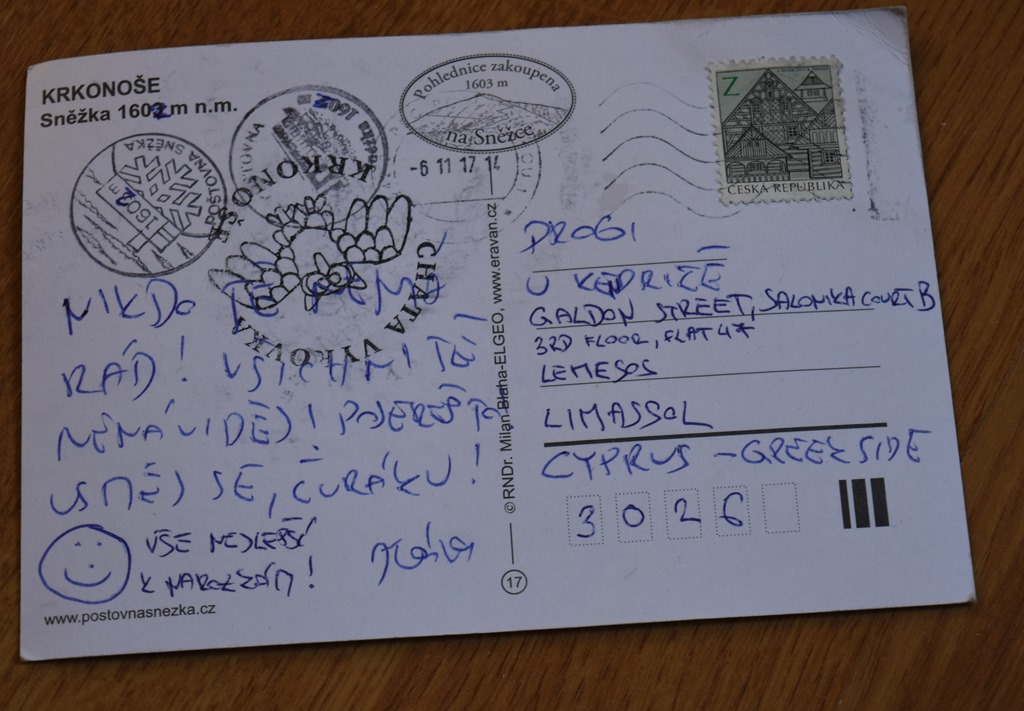 KRKONOŠE
Sněžka 1602 m n.m.
POŠTOVNA SNĚŽKA
1602 m
POŠTOVNA
1602 m
KRKONOŠE
CHATA VÝROVKA
Pohlednice zakoupena
1603 m
na Sněžce
-6 11 17 14
Z
ČESKÁ REPUBLIKA
NIKDO TĚ NEMÁ
RÁD! VŠICHNI TĚ
NENÁVIDĚJ! POJEREŠTO
USMĚJ SE, ČURÁKU!
VŠE NEJLEPŠÍ
K NAROZZÁM!
www.postovnasnezka.cz
© RNDr. Milan Blaha-ELGEO, www.eravan.cz
17
DROGI
U KEDRIZE
GALDON STREET, SALONIKA COURT B
3RD FLOOR, FLAT 47
LEMESOS
LIMASSOL
CYPRUS - GREEK SIDE
3026